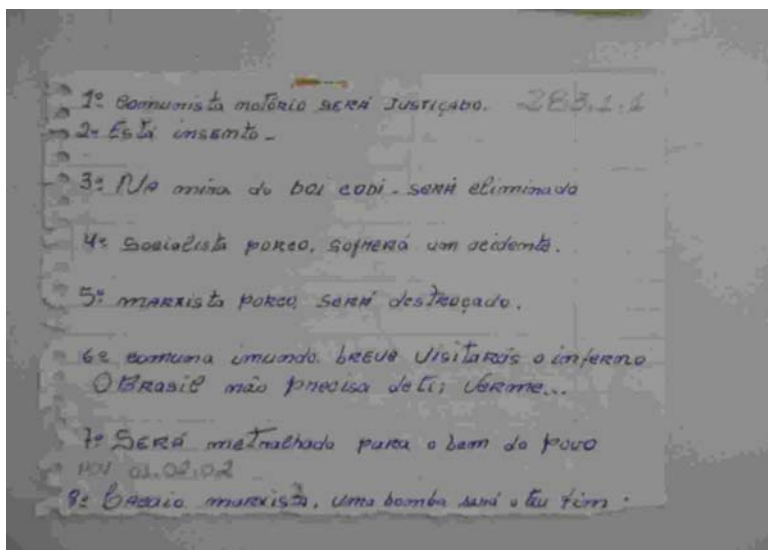 1º Comunista notório SERÁ JUSTIÇADO. 283.1.1
2º Está insento -
3º NA mira do DOI CODI - SERÁ eliminado
4º Socialista PORCO, SOFRERÁ um acidente.
5º MARXISTA PORCO, SERÁ destroçado.
6º comuna imundo, BREVE VISITARÁS o inferno
O BRASIL não precisa de ti, VERME...
7º SERÁ metralhado para o bem do povo
01.02.02
8º marxista, uma bomba será o teu fim.